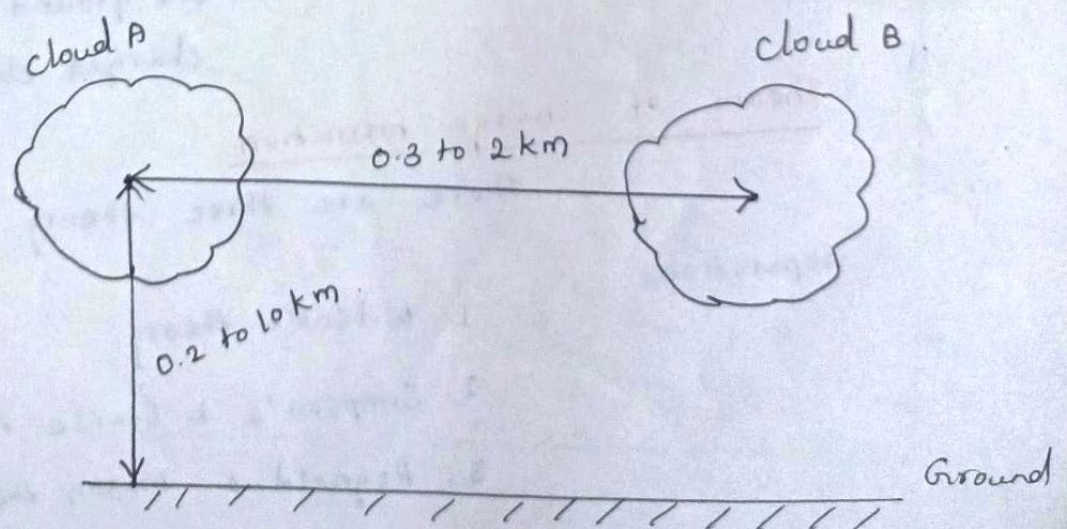 cloud A
cloud B.
0.3 to 2 km
0.2 to 10 km
Ground